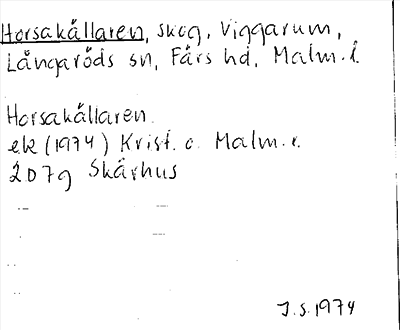 Horsakällaren, skog, Viggarum,
Långaröds sn, Färs hd, Malm. l.
Horsakällaren
ek (1974) Krist. o. Malm. l.
2D7g Skärhus
J.S. 1974